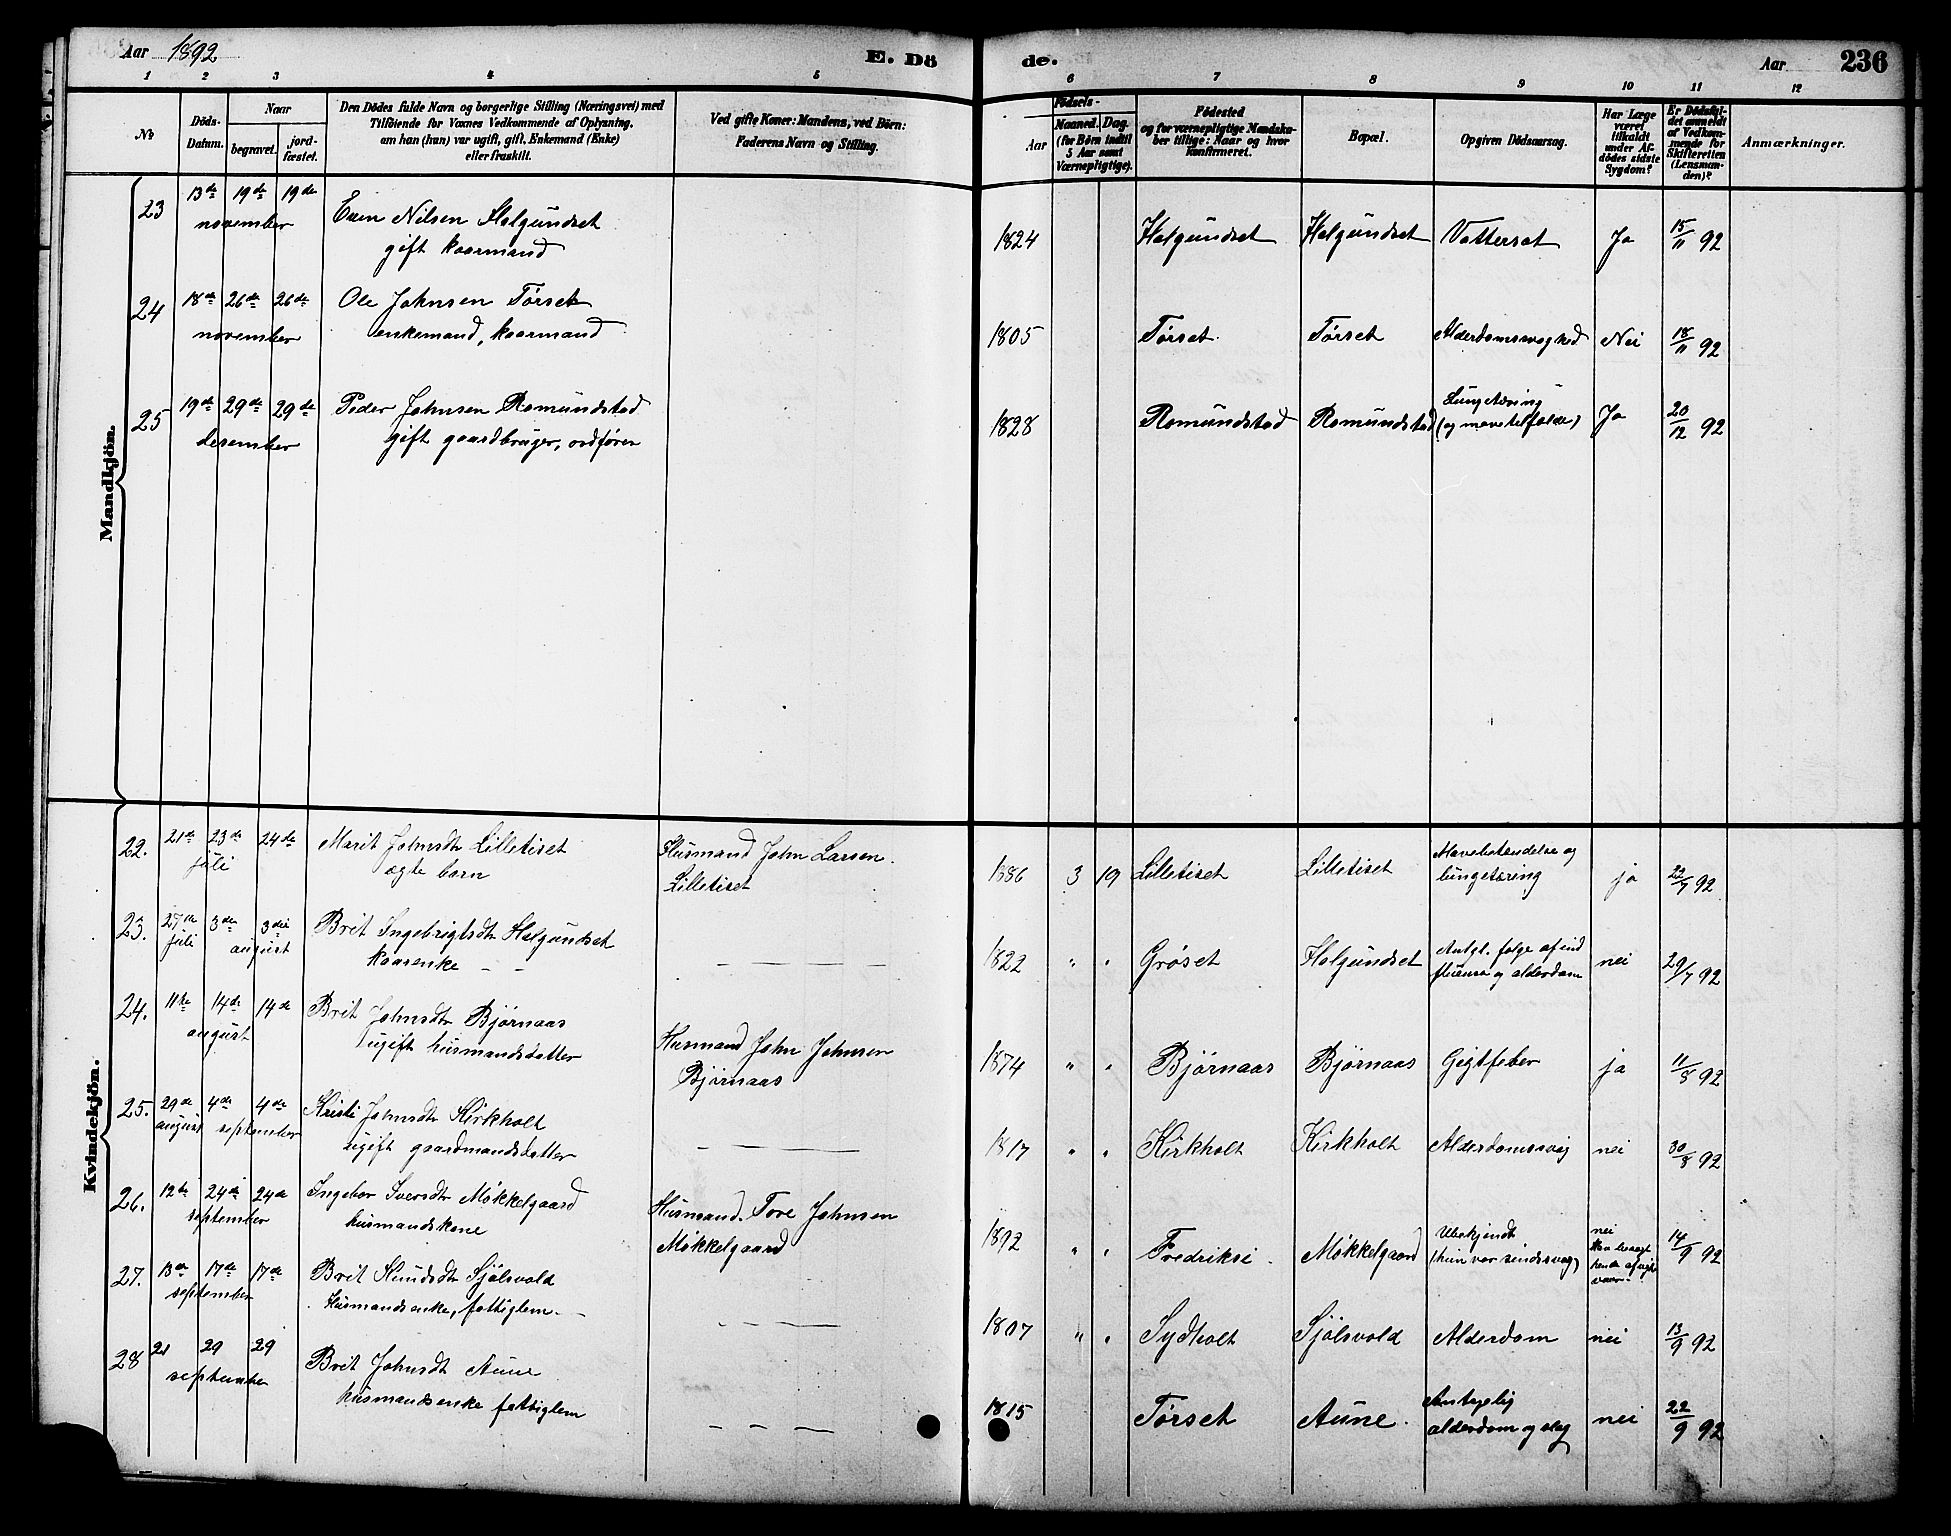 Aar 1892
E. Dö
de.
Aar
236
1 2 3 4 5 6 7 8 9 10 11 12
No
Döds-
Datum.
Naar
begravet.
jord-
fæstet.
Den Dödes fulde Navn og borgerlige Stilling (Næringsvei) med
Tilföiende for Voxnes Vedkommende af Oplysning,
om han (hun) var ugift, gift, Enkemand (Enke)
eller fraskilt.
Ved gifte Koner: Mandens, ved Börn:
Faderens Navn og Stilling.
Födsels-
Aar
Maaned. Dag.
(for Börn indtil
5 Aar samt
Værnepligtige).
Födested
og for værnepligtige Mandska-
ber tillige: Naar og hvor
konfirmeret.
Bopæl.
Opgiven Dödsaarsag.
Har Læge
været
tilkaldt
under Af-
dödes sidste
Sygdom?
Er Dödsfal-
det anmeldt
af Vedkom-
mende for
Skifteretten
(Lensman-
den)?
Anmærkninger.
Mandkjön.
23 13de 19de 19de
november
Even Nilsen Halgundset
gift kaarmand
1824 Halgundset Halgundset Vattersot Ja 15/11 92
24 18de 26de 26de
november
Ole Johnsen Tørset
enkemand, kaarmand
1805 Tørset Tørset Alderdomssvaghed Nei 18/11 92
25 19de 29de 29de
desember
Peder Johnsen Romundstad
gift gaardbruger, ordfører
1828 Romundstad Romundstad
Lungetæring
Ja 20/12 92
Kvindekjön.
22. 21de 23de 24de
juli
Marit Johnsdtr Lilletiset
ægte barn
Husmand John Larsen
Lilletiset
1886 3 19 Lilletiset Lilletiset
Mavebetændelse og
lungetæring
ja 22/7 92
23. 27de 3die 3die
juli august
Brit Ingebrigtsdtr Halgundset
kaarenke – –
– – – –
1822 " " Grøset Halgundset
Antgl. følge af inf
fluensa og alderdom
nei 29/7 92
24. 11te 14de 14de
august
Brit Johnsdtr Bjørnaas
ugift husmandsdatter
Husmand John Johnsen
Bjørnaas
1874 " " Bjørnaas Bjørnaas Gigtfeber ja 11/8 92
25. 29de 4de 4de
august september
Kristi Johnsdtr Kirkholt
ugift gaardmandsdatter
– – – –
1817 " " Kirkholt Kirkholt Alderdomssvag nei 30/8 92
26. 12te 24de 24de
september
Ingebor Iversdtr Møkkelgaard
husmandskone
Husmand Tore Johnsen
Møkkelgaard
1892 " " Fredriksi. Møkkelgaard
Ubekjendt
(hun var sindssvag)
nei
14/9 92
27. 13de 17de 17de
september
Brit Knudsdtr Sjølsvold
Husmandsenke, fattiglem.
– – – –
1807 " " Sydholt Sjølsvold Alderdom nei 13/9 92
28 21 29 29
september
Brit Johnsdt Aune
husmandsenke fattiglem
– – – –
1815 Tørset Aune.
Antagelig
alderdom og slag
nei 22/9 92